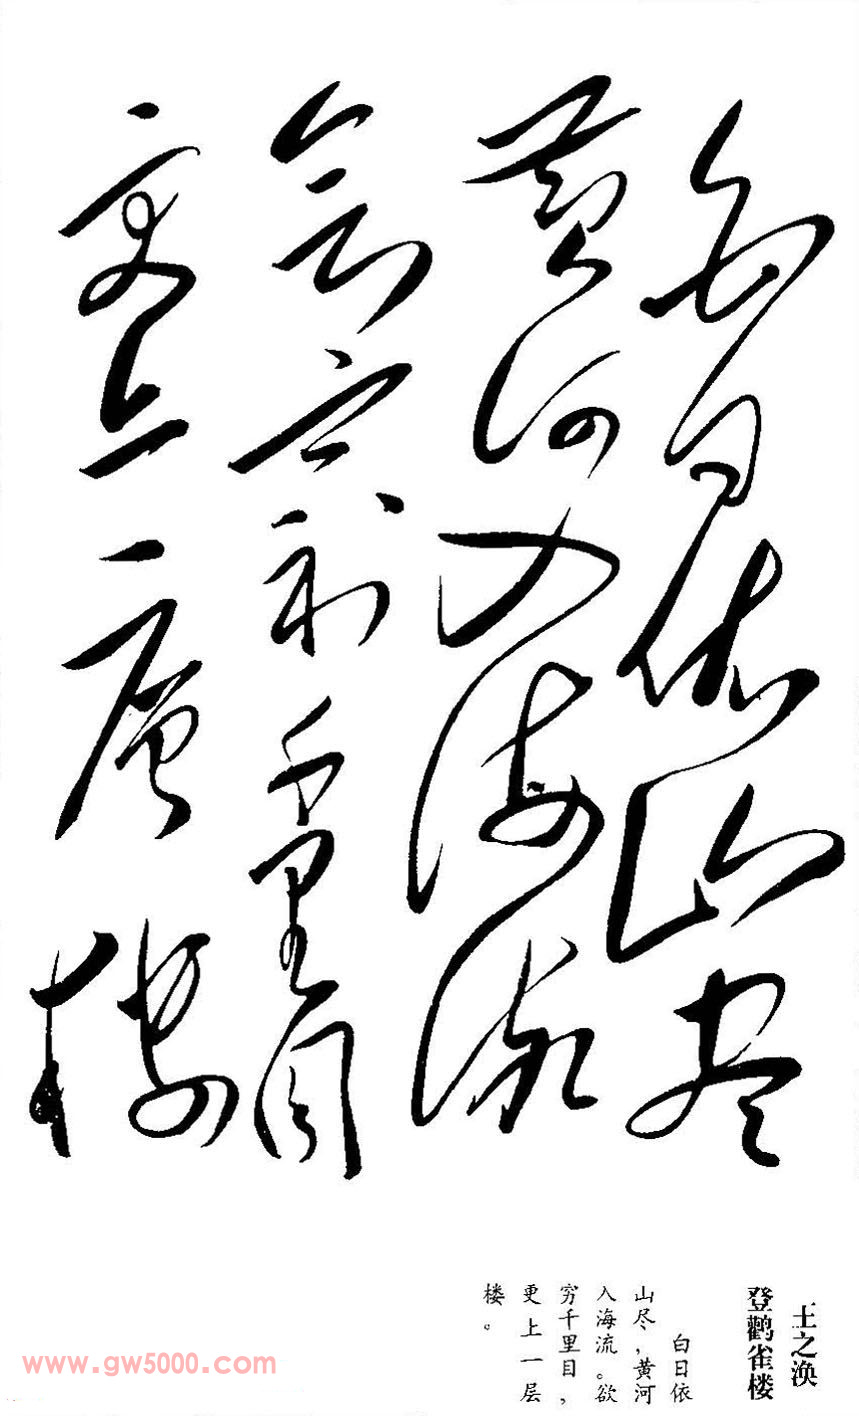 白日依山尽
黄河入海流
欲窮千里目
更上一層樓
王之涣
登鹳雀楼
白日依
山尽，黄河
入海流。欲
穷千里目，
更上一层
楼。
www.gw5000.com